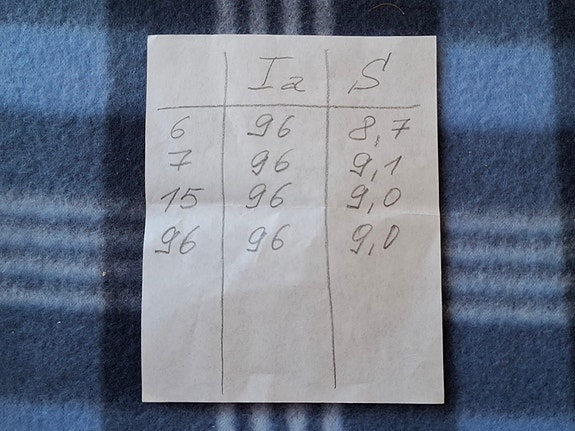 Ia S
6 96 8,7
7 96 9,1
15 96 9,0
96 96 9,0